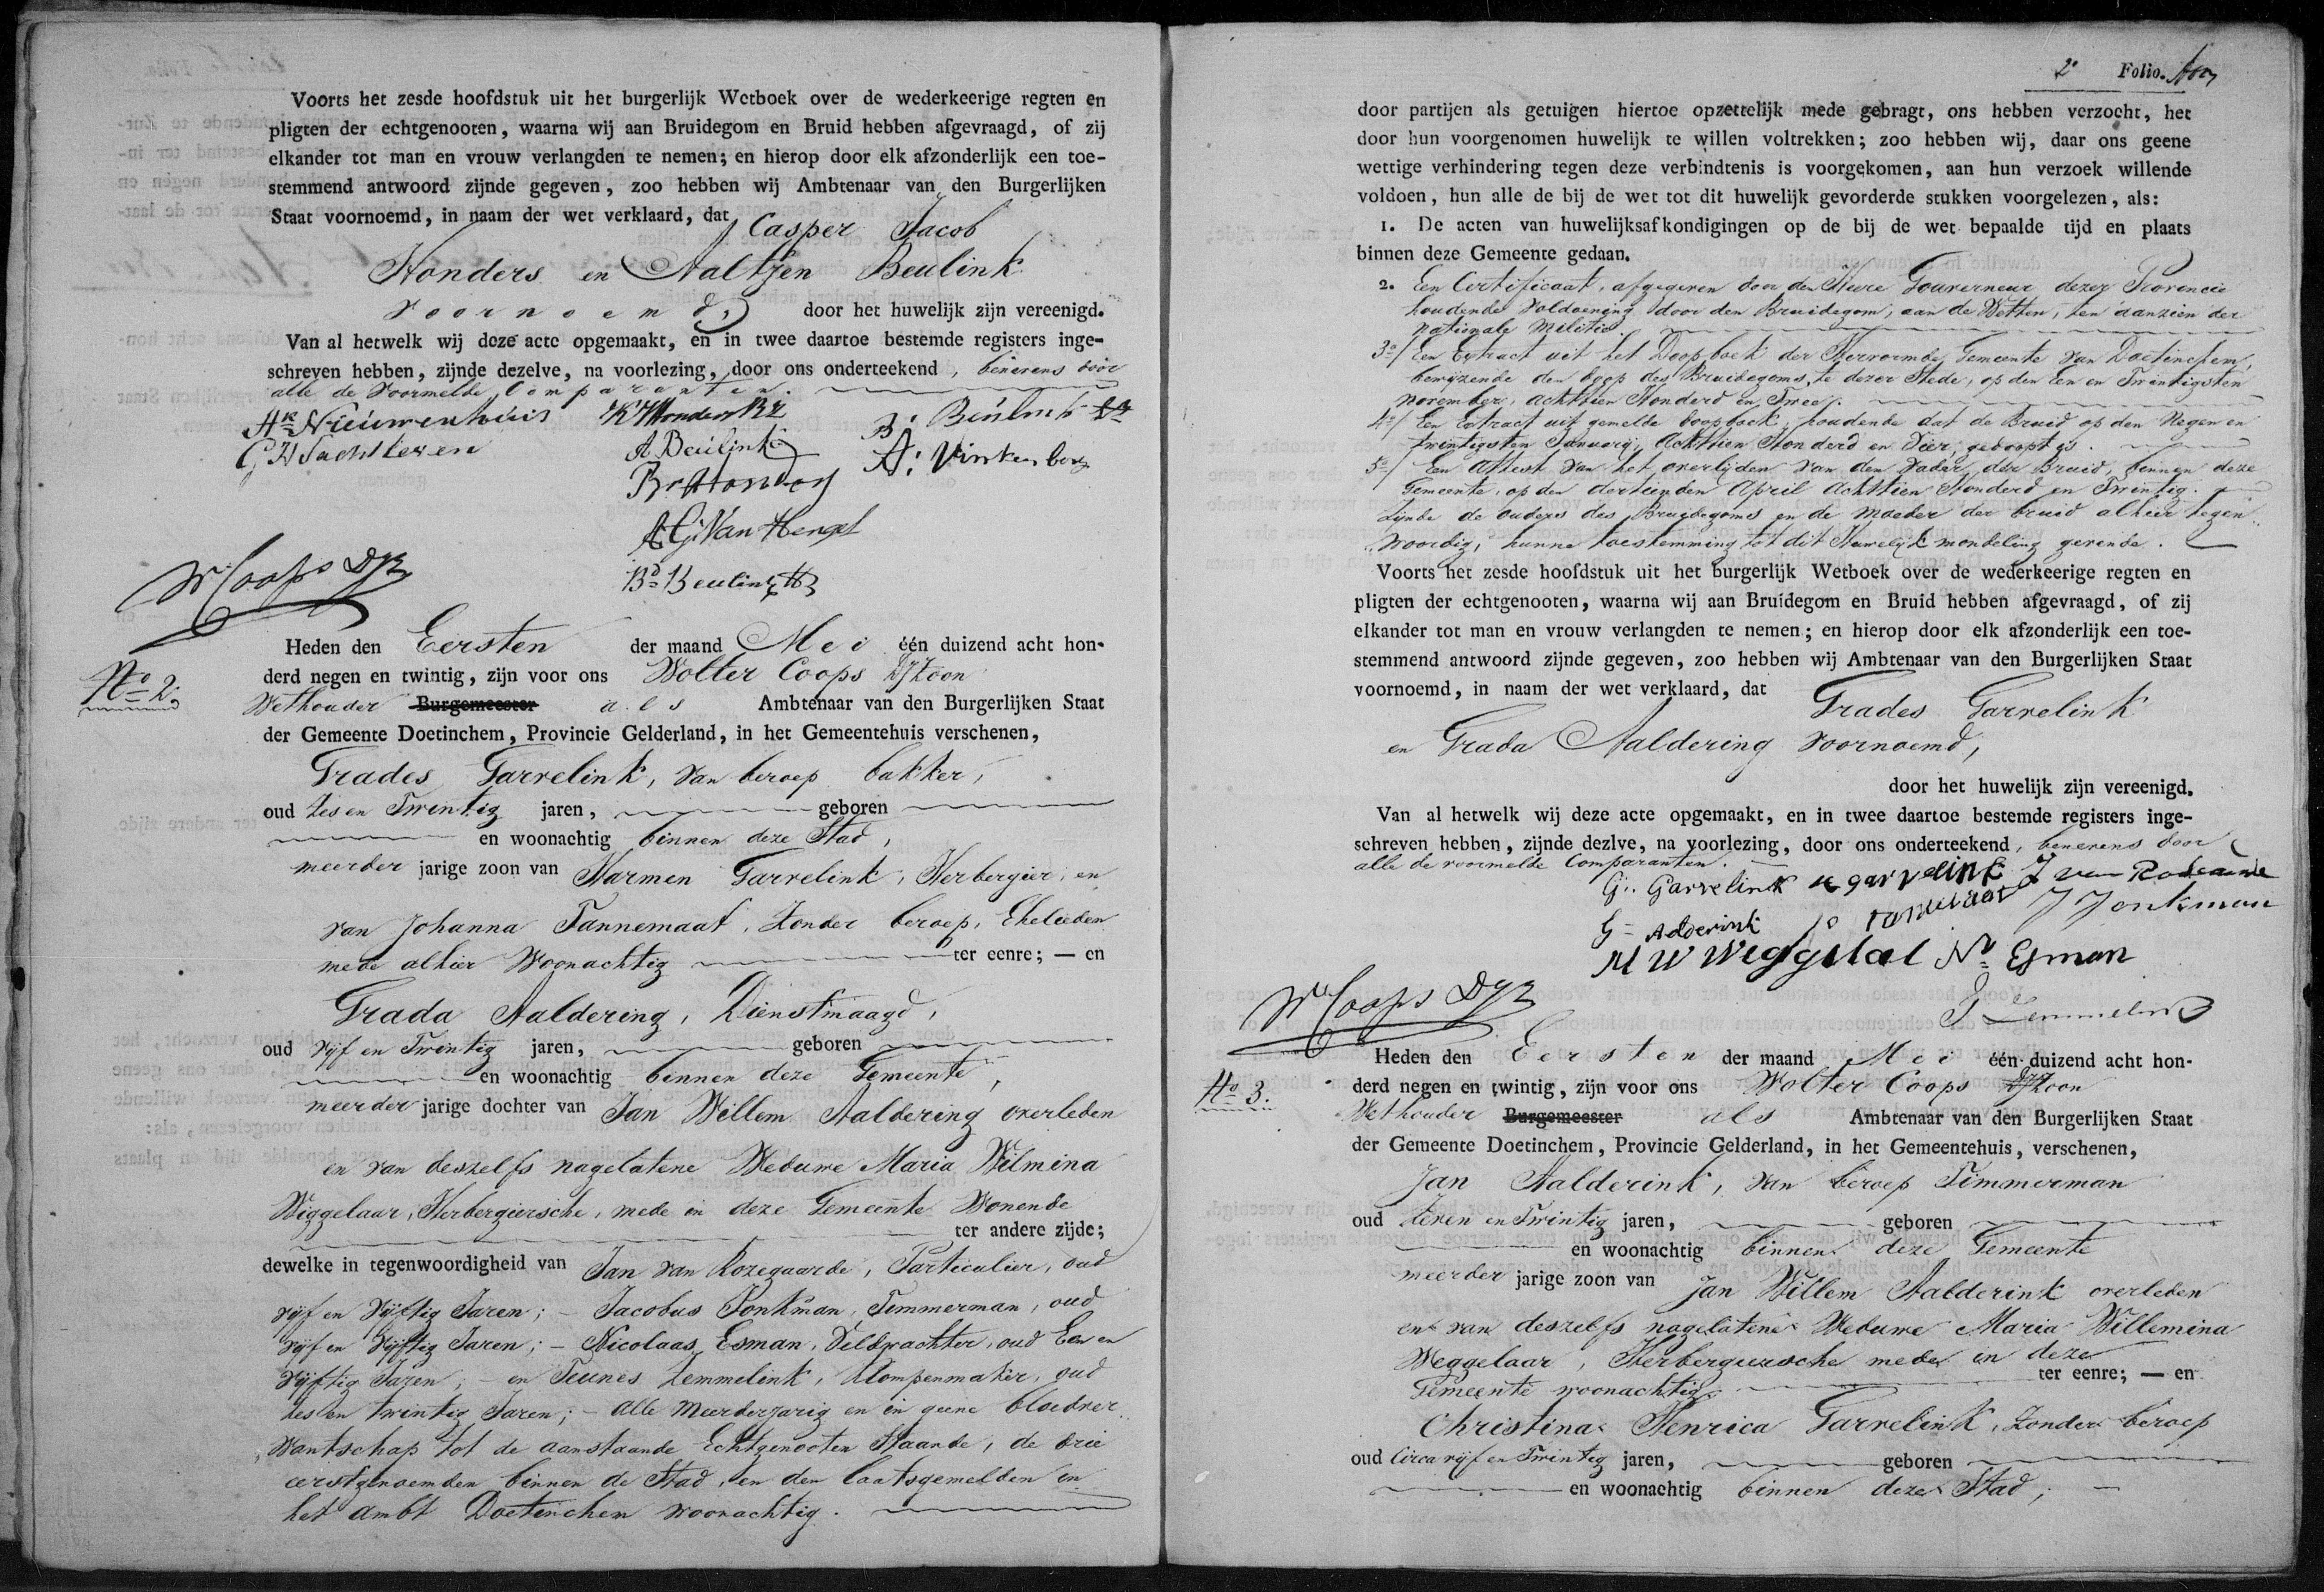 Voorts het zesde hoofdstuk uit het burgerlijk Wetboek over de wederkeerige regten en
pligten der echtgenooten, waarna wij aan Bruidegom en Bruid hebben afgevraagd, of zij
elkander tot man en vrouw verlangden te nemen; en hierop door elk afzonderlijk een toe-
stemmend antwoord zijnde gegeven, zoo hebben wij Ambtenaar van den Burgerlijken
Staat voornoemd, in naam der wet verklaard, dat Casper Jacob
Honders en Aaltjen Beulink
voornoemd, door het huwelijk zijn vereenigd.
Van al hetwelk wij deze acte opgemaakt, en in twee daartoe bestemde registers inge-
schreven hebben, zijnde dezelve, na voorlezing, door ons onderteekend, benevens door
alle de voormelde Comparanten.
Hk Nieuwenhuis
A Beulink
A: Vinkenborg
A G: Van Hengel
Bd Beulink
W Coops DJZ
No 2.
Heden den Eersten der maand Mei één duizend acht hon-
derd negen en twintig, zijn voor ons Wolter Coops DJZoon
Wethouder Burgemeester als Ambtenaar van den Burgerlijken Staat
der Gemeente Doetinchem, Provincie Gelderland, in het Gemeentehuis verschenen,
Grades Garrelink, van beroep bakker,
oud Zes en Twintig jaren, geboren
en woonachtig binnen deze Stad,
meerder jarige zoon van Harmen Garrelink, Herbergier, en
van Johanna Tannemaat, Zonder beroep, Ehelieden
mede alhier Woonachtig ter eenre; — en
Grada Aaldering, Dienstmaagd,
oud vijf en Twintig jaren, geboren
en woonachtig binnen deze Gemeente,
meerder jarige dochter van Jan Willem Aaldering overleden
en van deszelfs nagelatene Weduwe Maria Wilmina
Wiggelaar, Herbergiersche, mede in deze Gemeente Wonende
ter andere zijde;
dewelke in tegenwoordigheid van Jan van Rozegaarde, Particulier, oud
vijf en Vijftig Jaren; – Jacobus Jonkman, Timmerman, oud
vijf en Vijftig Jaren; – Nicolaas Esman, Veldwachter, oud Een en
Vijftig Jaren; – en Teunes Lemmelink, Klompenmaker, oud
zes en twintig Jaren; – Alle Meerderjarig en in geene bloedver-
wantschap tot de aanstaande Echtgenooten staande, de drie
eerstgenoemden binnen de Stad, en den laatsgemelden in
het ambt Doetinchem woonachtig.
2e Folio.
door partijen als getuigen hiertoe opzettelijk mede gebragt, ons hebben verzocht, het
door hun voorgenomen huwelijk te willen voltrekken; zoo hebben wij, daar ons geene
wettige verhindering tegen deze verbindtenis is voorgekomen, aan hun verzoek willende
voldoen, hun alle de bij de wet tot dit huwelijk gevorderde stukken voorgelezen, als:
1. De acten van huwelijksafkondigingen op de bij de wet bepaalde tijd en plaats
binnen deze Gemeente gedaan.
2. Een Certificaat, afgegeven door den Heere Gouverneur dezer Provencie
houdende Voldoening door den Bruidegom, aan de Wetten, ten aanzien der
nationale Militie.
3o/ Een Extract uit het Doopboek der Hervormde Gemeente van Doetinchem,
bewijzende den doop des Bruidegoms, te dezer Stede, op den Een en Twintigsten
november, achttien Honderd en Twee.
4o/ Een Extract uit gemelde doopboek, houdende dat de Bruid op den Negen en
twintigsten January, Achttien Honderd en Vier, gedoopt is.
5o/ Een Attest van het overlijden van den Vader der Bruid, binnen deze
Gemeente, op den dertienden April Achttien Honderd en Twintig.
Zijnde de ouders des Bruidegoms en de Moeder der bruid alhier tegen-
woordig, hunne toestemming tot dit Huwelijk mondeling gevende.
Voorts het zesde hoofdstuk uit het burgerlijk Wetboek over de wederkeerige regten en
pligten der echtgenooten, waarna wij aan Bruidegom en Bruid hebben afgevraagd, of zij
elkander tot man en vrouw verlangden te nemen; en hierop door elk afzonderlijk een toe-
stemmend antwoord zijnde gegeven, zoo hebben wij Ambtenaar van den Burgerlijken Staat
voornoemd, in naam der wet verklaard, dat Grades Garrelink
en Grada Aaldering voornoemd,
door het huwelijk zijn vereenigd.
Van al hetwelk wij deze acte opgemaakt, en in twee daartoe bestemde registers inge-
schreven hebben, zijnde dezlve, na voorlezing, door ons onderteekend, benevens door
alle de voormelde Comparanten.
G: Garrelink H garvelink J van
G= Adderink J Jonkman
M W Weggelal Ns Esman
W Coops DJZ
No 3.
Heden den Eersten der maand Mei één duizend acht hon-
derd negen en twintig, zijn voor ons Wolter Coops DJZoon
Wethouder Burgemeester als Ambtenaar van den Burgerlijken Staat
der Gemeente Doetinchem, Provincie Gelderland, in het Gemeentehuis, verschenen,
Jan Aalderink, van beroep Timmerman
oud zeven en Twintig jaren, geboren
en woonachtig binnen deze Gemeente
meerder jarige zoon van Jan Willem Aalderink overleden
en van deszelfs nagelatene Weduwe Maria Willemina
Weggelaar, Herbergiersche mede in deze
Gemeente woonachtig, ter eenre; — en
Christina Henrica Garrelink, Zonder beroep
oud Circa vijf en Twintig jaren, geboren
en woonachtig binnen deze Stad,